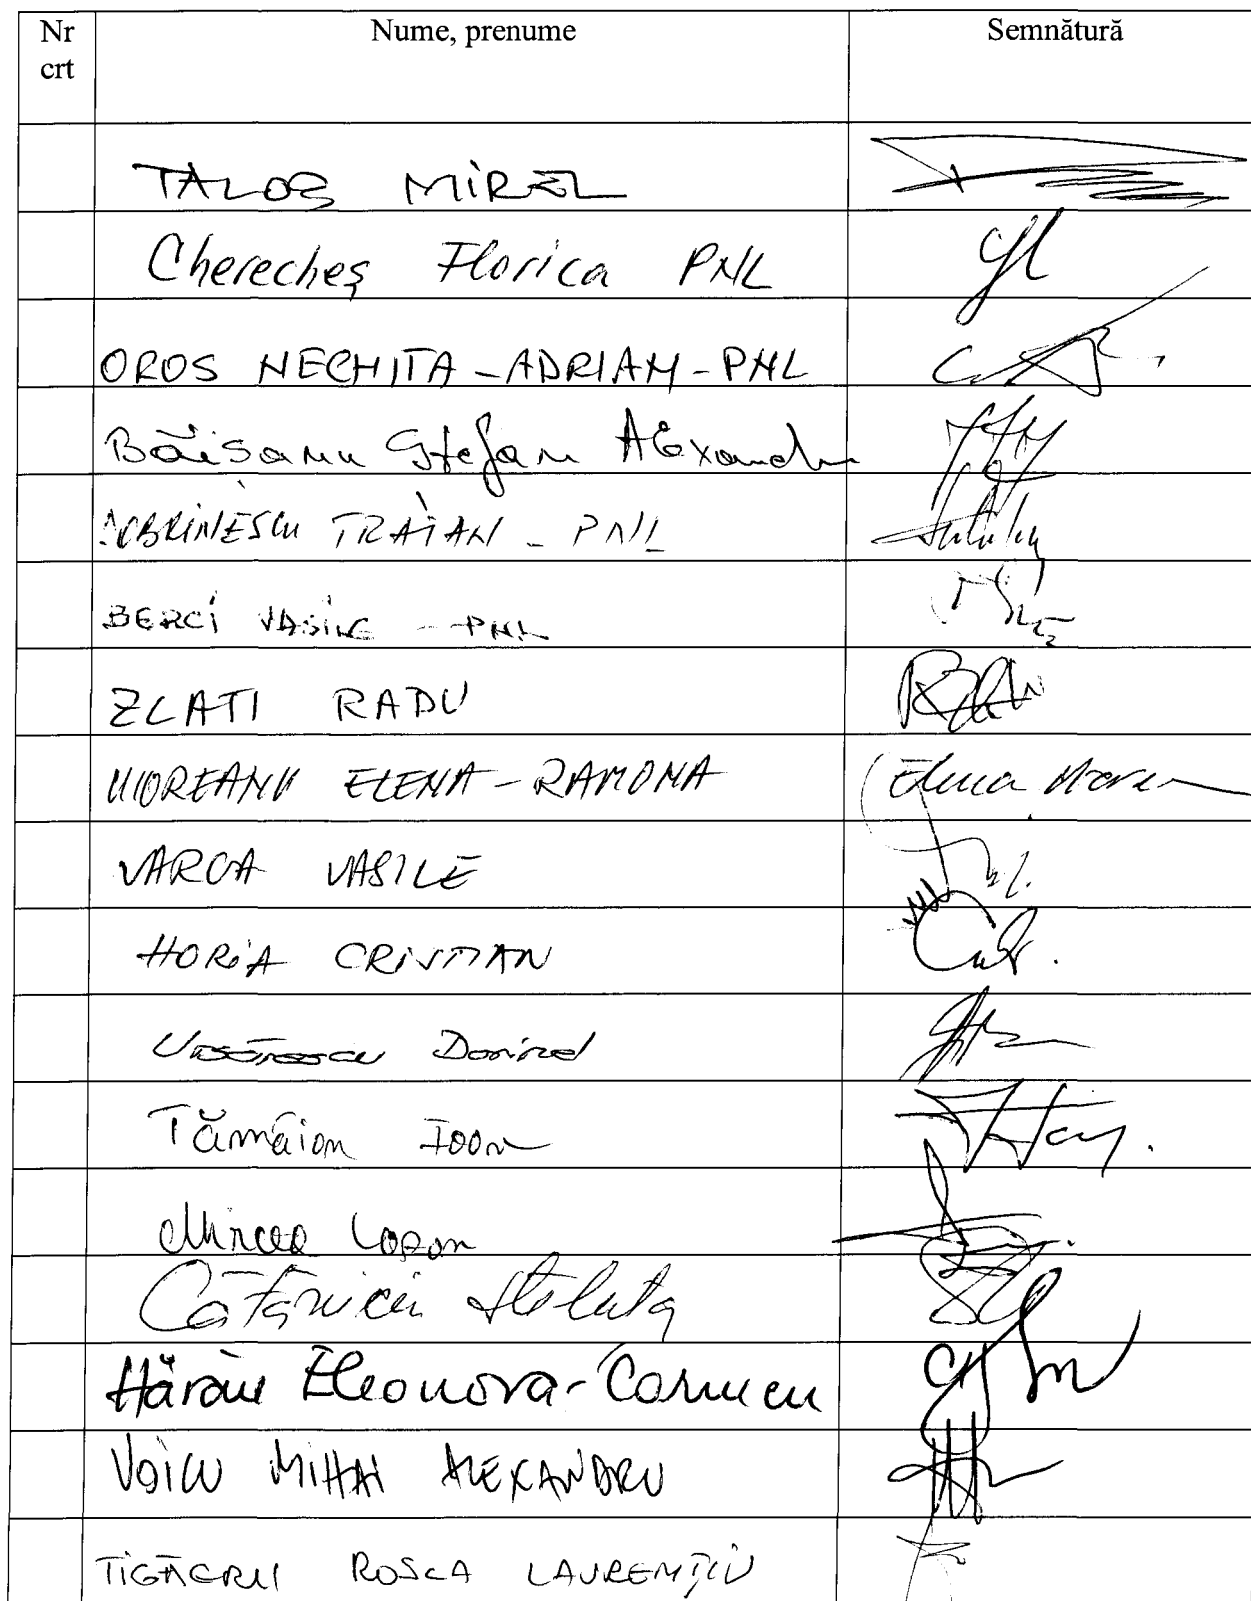 Nr crt Nume, prenume Semnătură
TALOȘ MIREL
Cherecheș Florica PNL
OROS NECHITA-ADRIAN-PNL
Băișanu Ștefan Alexandru
DOBRINESCU TRAIAN - PNL
BERCI VASILE - PNL
ZLATI RADU
UIOREANU ELENA-RAMONA
VARGA VASILE
HORIA CRISTIAN
Dorinel
Tămâian Ioan
Mircea
Cătănicii Steluța
Hărău Eleonora-Carmen
VOICU MIHAI ALEXANDRU
ROSCA LAURENȚIU